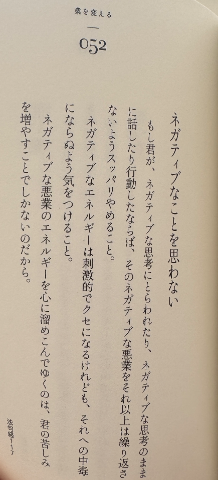 業を変える
052
ネガティブなことを思わない
もし君が、ネガティブな思考にとらわれたり、ネガティブな思考のまま
に話したり行動したならば、そのネガティブな悪業をそれ以上は繰り返さ
ないようスッパリやめること。
ネガティブなエネルギーは刺激的でクセになるけれども、それへの中毒
にならぬよう気をつけること。
ネガティブな悪業のエネルギーを心に溜めこんでゆくのは、君の苦しみ
を増やすことでしかないのだから。
法句経117